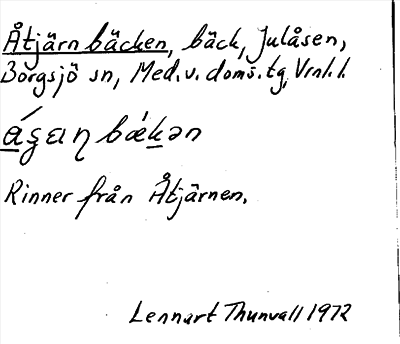 Åtjärnbäcken, bäck, Julåsen,
Borgsjö sn, Med. v. doms. tg, Vrnl. l.
Rinner från Åtjärnen.
Lennart Thunvall 1972